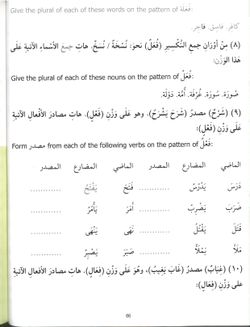 Give the plural of each of these words on the pattern of فَعَلَة:
كافر، فاسق، فاجر.
(٨) مِنْ أوْزانِ جمعِ التَّكْسيرِ (فُعَلٌ) نحوَ: نُسْخَةٌ / نُسَخٌ. هاتِ جمعَ الأسْماءِ الآتيةِ عَلَى
هذا الوَزْنِ:
Give the plural of each of these nouns on the pattern of فُعَلٌ:
صُورَة. سُورَة. غُرْفَة. أُمَّة. دَوْلَة.
(٩) (شَرْحٌ) مصدرُ (شَرَحَ يَشْرَحُ). وهو عَلَى وَزْنِ (فَعْلٌ). هاتِ مصادرَ الأفعالِ الآتيةِ
عَلَى وَزْنِ (فَعْلٌ):
Form مصدر from each of the following verbs on the pattern of فَعْلٌ:
الماضي المضارع المصدر الماضي المضارع المصدر
دَرَسَ يَدْرُسُ ............ فَتَحَ يَفْتَحُ ............
ضَرَبَ يَضْرِبُ ............ أَمَرَ يَأْمُرُ ............
قَتَلَ يَقْتُلُ ............ نَهَى يَنْهَى ............
مَلَأَ يَمْلَأُ ............ صَبَرَ يَصْبِرُ ............
(١٠) (غِيابٌ) مصدرُ (غابَ يَغِيبُ)، وهُوَ عَلَى وَزْنِ (فِعَالٌ). هاتِ مصادرَ الأفعالِ الآتيةِ
عَلَى وَزْنِ (فِعَالٌ):